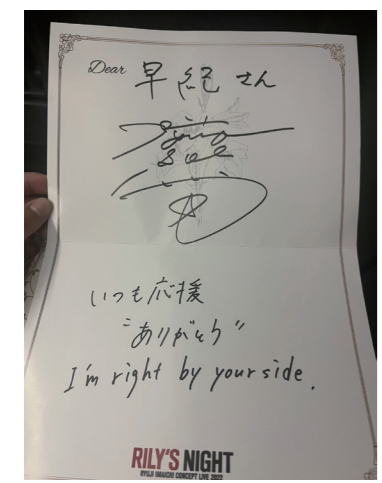 Dear 早紀さん
いつも応援
"ありがとう"
I'm right by your side.
RILY'S NIGHT
RYUJI IMAICHI CONCEPT LIVE 2022